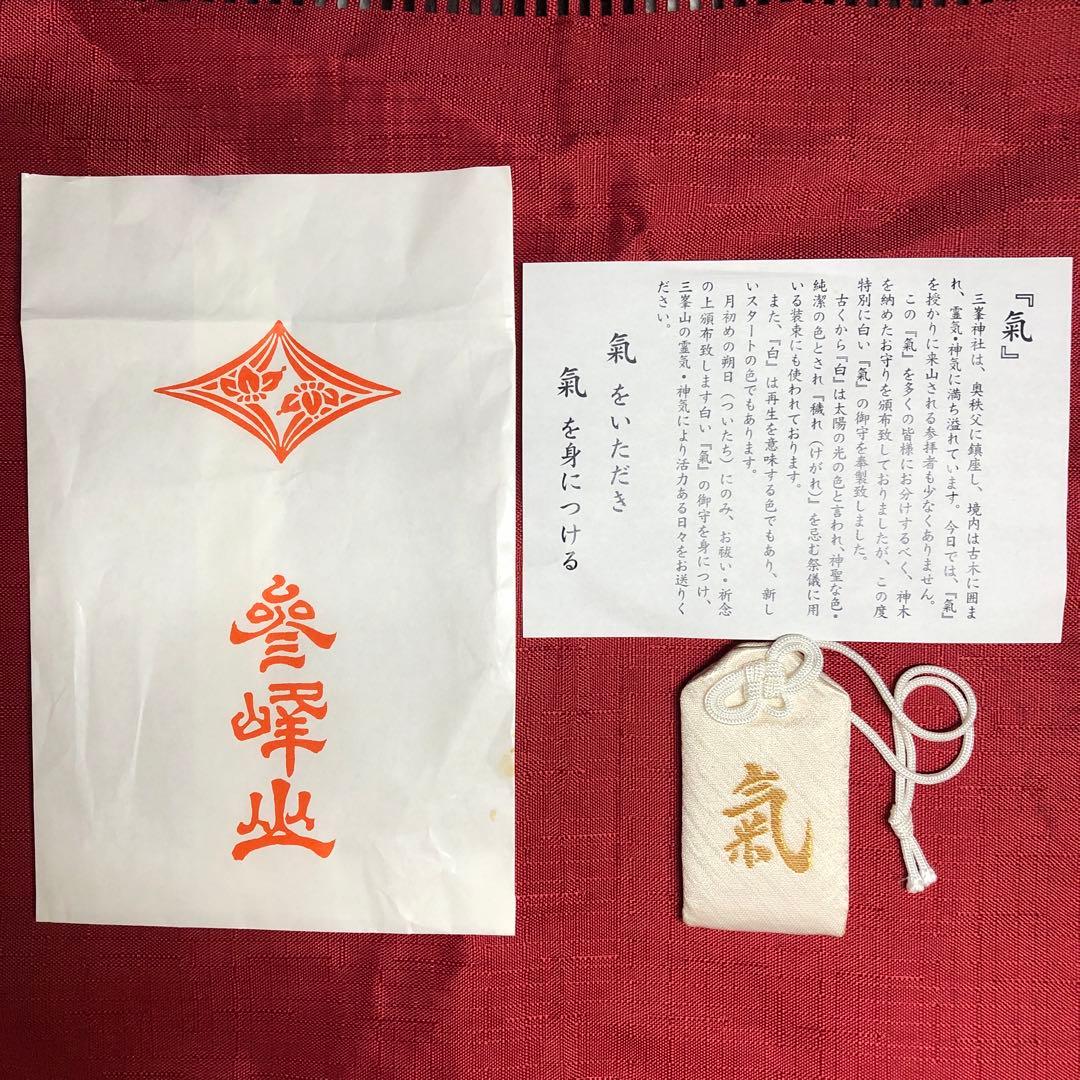 參峰山
『氣』
三峯神社は、奥秩父に鎮座し、境内は古木に囲ま
れ、霊気・神気に満ち溢れています。今日では、『氣』
を授かりに来山される参拝者も少なくありません。
この『氣』を多くの皆様にお分けするべく、神木
を納めたお守りを頒布致しておりましたが、この度
特別に白い『氣』の御守を奉製致しました。
古くから『白』は太陽の光の色と言われ、神聖な色・
純潔の色とされ『穢れ（けがれ）』を忌む祭儀に用
いる装束にも使われております。
また、『白』は再生を意味する色でもあり、新し
いスタートの色でもあります。
月初めの朔日（ついたち）にのみ、お祓い・祈念
の上頒布致します白い『氣』の御守を身につけ、
三峯山の霊気・神気により活力ある日々をお送りく
ださい。
氣をいただき
氣を身につける
氣